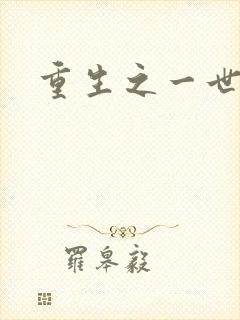 重生之一世
羅皋毅